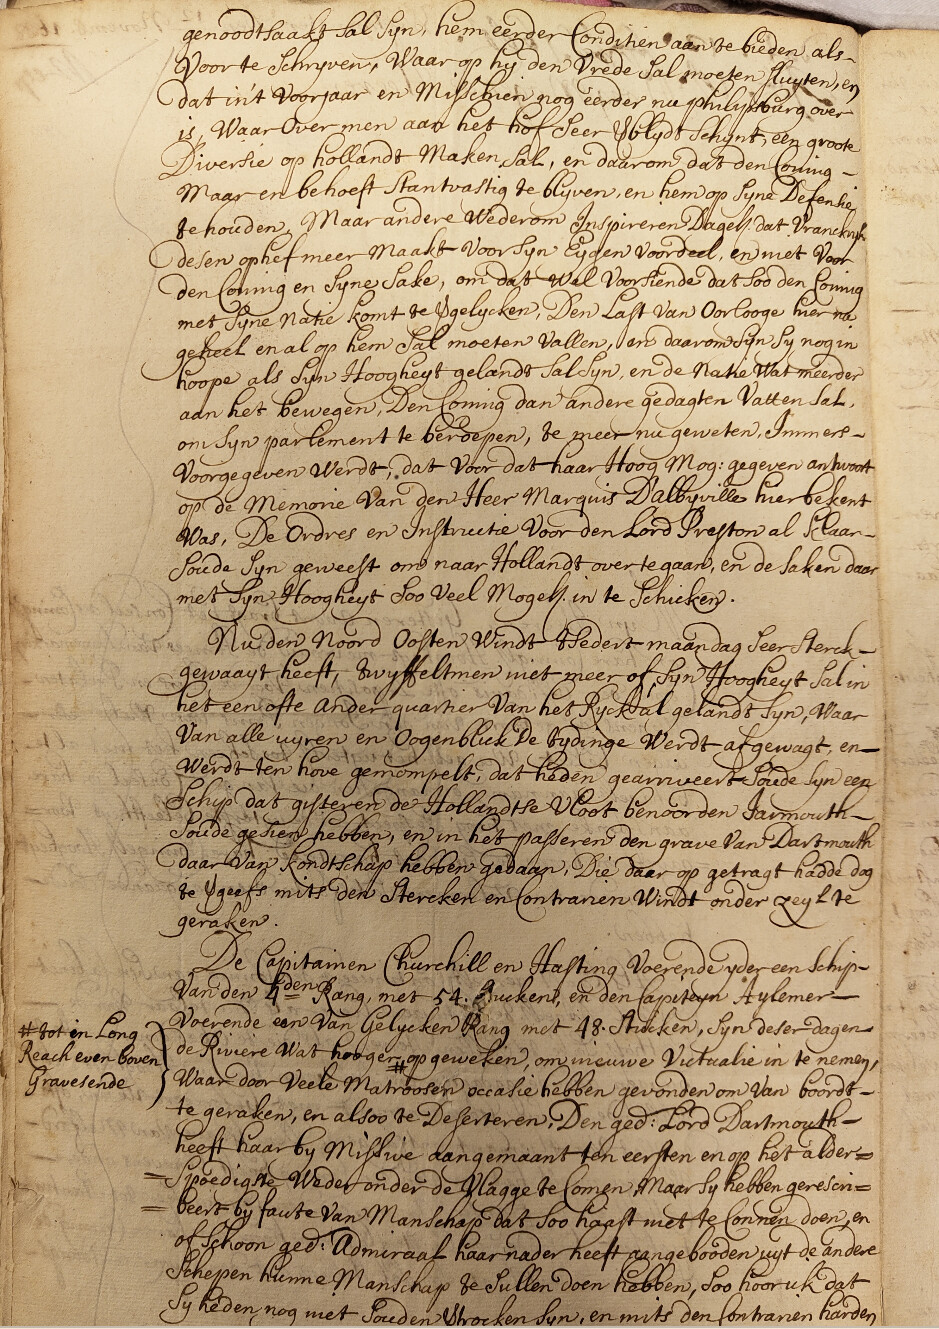 genoodtsaakt sal syn, hem eerder Conditien aan te bieden als-
Voor te Schryven, Waar op hy den Vrede Sal moeten sluyten, en
dat in't Voorjaar en Misschien nog eerder nu philipsburg over
is, Waar Over men aan het hof Seer Vblydt Schynt, een groote
Diversie op hollandt Maken Sal, en daarom dat den Coning-
Maar en behoeft Stantvastig te blyven, en hem op Syne Defensie
te houden, Maar andere Wederom Inspireren Dagel: dat Vranckryk
desen ophef meer Maakt voor Syn Eygen voordeel, en niet Voor
den Coning en Syne Sake, om dat Wel Voorsiende dat Soo den Coning
met Syne Natie komt te Vgelycken, Den Last Van Oorlooge hier na
geheel en al op hem Sal moeten Vallen, en daarom Syn Sy nog in
hoope als Syn Hoogheyt gelandt Sal Syn, en de Natie Wat meerder
aan het bewegen, Den Coning dan andere gedagten Vatten Sal,
om Syn parlement te beroepen, te meer nu geweten, Immers-
Voorgegeven Werdt, dat Voor dat haar Hoog Mog: gegeven antwoort
op de Memorie Van den Heer Marquis D'albyville hier bekent
Was, De Ordres en Instructie Voor den Lord Preston al Klaar-
Soude Syn geweest om naar Hollandt over te gaan, en de saken daar
met Syn Hoogheyt Soo Veel Mogel: in te Schicken.
Nu den Noord Oosten Windt tSedert maandag Seer Sterck-
gewaayt heeft, twyffelt men niet meer of Syn Hoogheyt Sal in
het een ofte ander quartier Van het Ryck al gelandt Syn, Waar
Van alle uyren en Oogenblick De tydinge Werdt afgewagt, en-
Werdt ten hove gemompelt, dat heden gearriveert Soude Syn een
Schip dat gisteren de Hollandtse Vloot benoorden Jarmouth-
Soude gesien hebben, en in het passeren den grave Van Dartmouth
daar Van kondtschap hebben gedaan, Die daar op getragt hadde dog
te Vgeefs mits den Stercken en Contrarien Windt onder zeyl te
geraken.
De Capitainen Churchill en Hasting Voerende yder een Schip-
Van den 4den Rang, met 54. Stucken, en den Capiteyn Aylemer-
Voerende een Van Gelycken Rang met 48. Stucken, Syn deser dagen-
de Riviere Wat hooger # opgeweken, om nieuwe Victualie in te nemen,
# tot in Long
Reach even boven
Gravesende
Waar door Veele Matroosen occasie hebben gevonden om Van boordt-
te geraken, en alsoo te Deserteren, Den ged: Lord Dartmouth-
heeft haar by Missive aangemaant ten eersten en op het alder=
=Spoedigste Weder onder de Vlagge te Comen, Maar Sy hebben gerescri=
=beert by faute Van Manschap dat Soo haast niet te Connen doen, en
of Schoon ged: Admiraal haar nader heeft aangebooden uyt de andere
Schepen hunne Manschap te Sullen doen hebben, Soo hoor ik dat
Sy heden nog niet Souden Vtrocken Syn, en mits den Contrarien harden